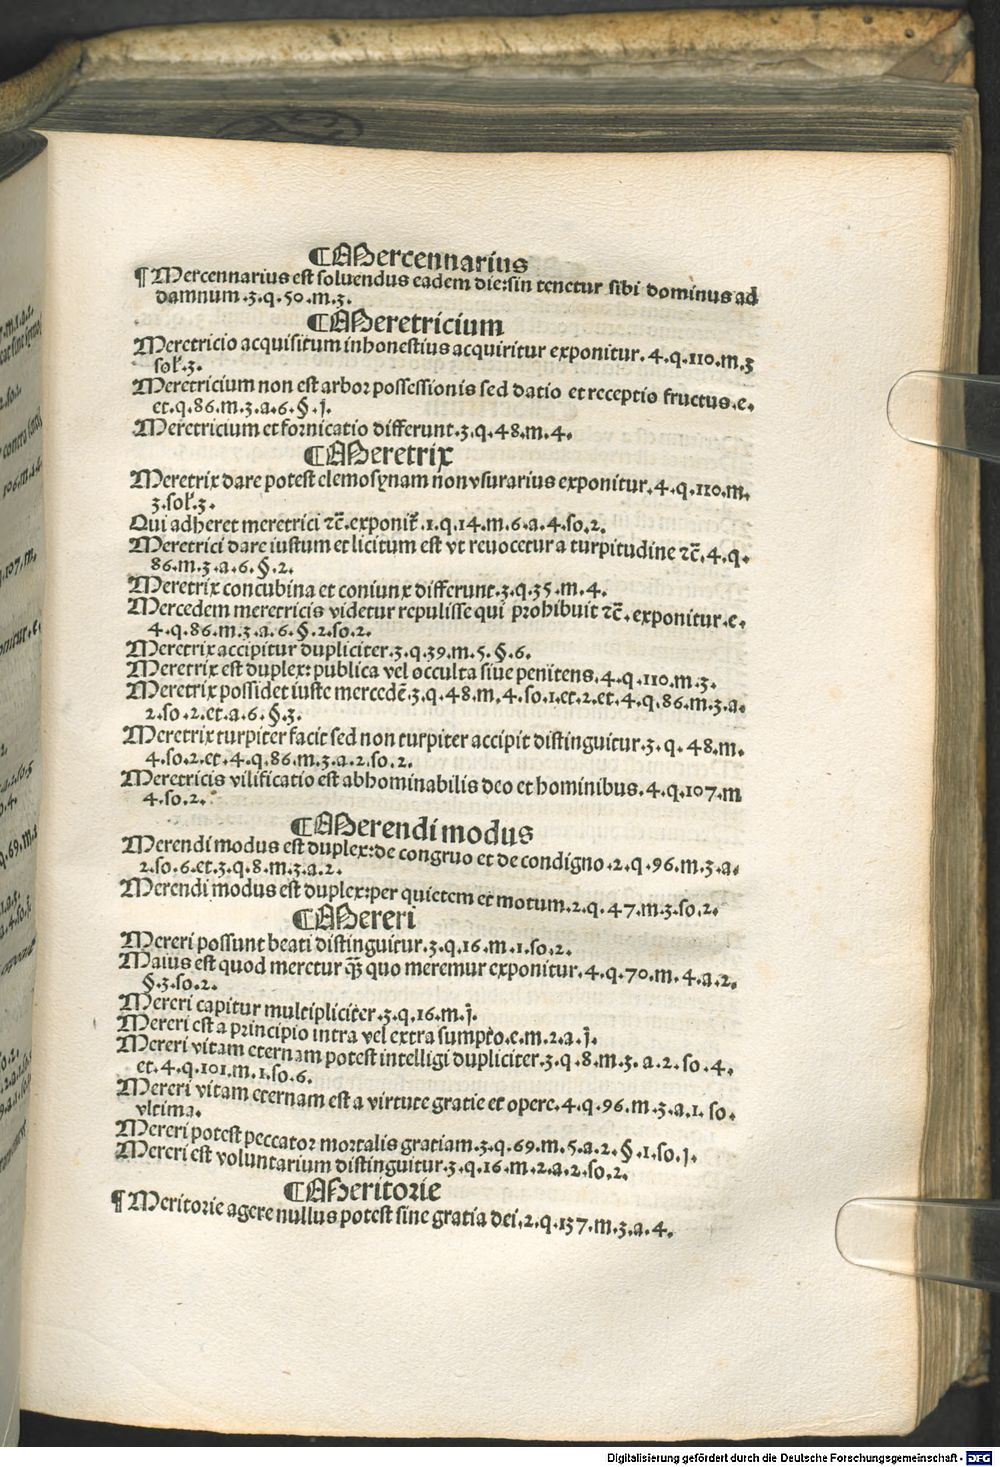 ¶Mercennarius
¶ Mercennarius est soluendus eadem die: sin tenetur sibi dominus ad
damnum .3.q.50.m.3.
¶Meretricium
Meretricio acquisitum inhonestius acquiritur exponitur.4.q.110.m.3
sol'.3.
Meretricium non est arbor possessionis sed datio et receptio fructus.e.
et.q.86.m.3.a.6.§.j.
Meretricium et fornicatio differunt.3.q.48.m.4.
¶Meretrix
Meretrix dare potest elemosynam non vsurarius exponitur.4.q.110.m.
3.sol'.3.
Qui adheret meretrici ⁊c̄.exponit̄.1.q.14.m.6.a.4.so.2.
Meretrici dare iustum et licitum est vt reuocetur a turpitudine ⁊c̄.4.q.
86.m.3.a.6.§.2.
Meretrix concubina et coniunx differunt.3.q.35.m.4.
Mercedem meretricis videtur repulisse qui prohibuit ⁊c̄.exponitur.e.
4.q.86.m.3.a.6.§.2.so.2.
Meretrix accipitur dupliciter.3.q.39.m.5.§.6.
Meretrix est duplex: publica vel occulta siue penitens.4.q.110.m.3.
Meretrix possidet iuste mercedē.3.q.48.m.4.so.1.et.2.et.4.q.86.m.3.a.
2.so.2.et.a.6.§.3.
Meretrix turpiter facit sed non turpiter accipit distinguitur.3.q.48.m.
4.so.2.et.4.q.86.m.3.a.2.so.2.
Meretricis vilificatio est abhominabilis deo et hominibus.4.q.107.m
4.so.2.
¶Merendi modus
Merendi modus est duplex: de congruo et de condigno.2.q.96.m.3.a.
2.so.6.et.3.q.8.m.3.a.2.
Merendi modus est duplex: per quietem et motum.2.q.47.m.3.so.2.
¶Mereri
Mereri possunt beati distinguitur.3.q.16.m.1.so.2.
Maius est quod meretur q̄ꝫ quo meremur exponitur.4.q.70.m.4.a.2.
§.3.so.2.
Mereri capitur multipliciter.3.q.16.m.j.
Mereri est a principio intra vel extra sumpto.e.m.2.a.j.
Mereri vitam eternam potest intelligi dupliciter.3.q.8.m.3.a.2.so.4.
et.4.q.101.m.1.so.6.
Mereri vitam eternam est a virtute gratie et opere.4.q.96.m.3.a.1.so.
vltima.
Mereri potest peccator mortalis gratiam.3.q.69.m.5.a.2.§.1.so.j.
Mereri est voluntarium distinguitur.3.q.16.m.2.a.2.so.2.
¶Meritorie
¶ Meritorie agere nullus potest sine gratia dei.2.q.137.m.3.a.4.
Digitalisierung gefördert durch die Deutsche Forschungsgemeinschaft - DFG